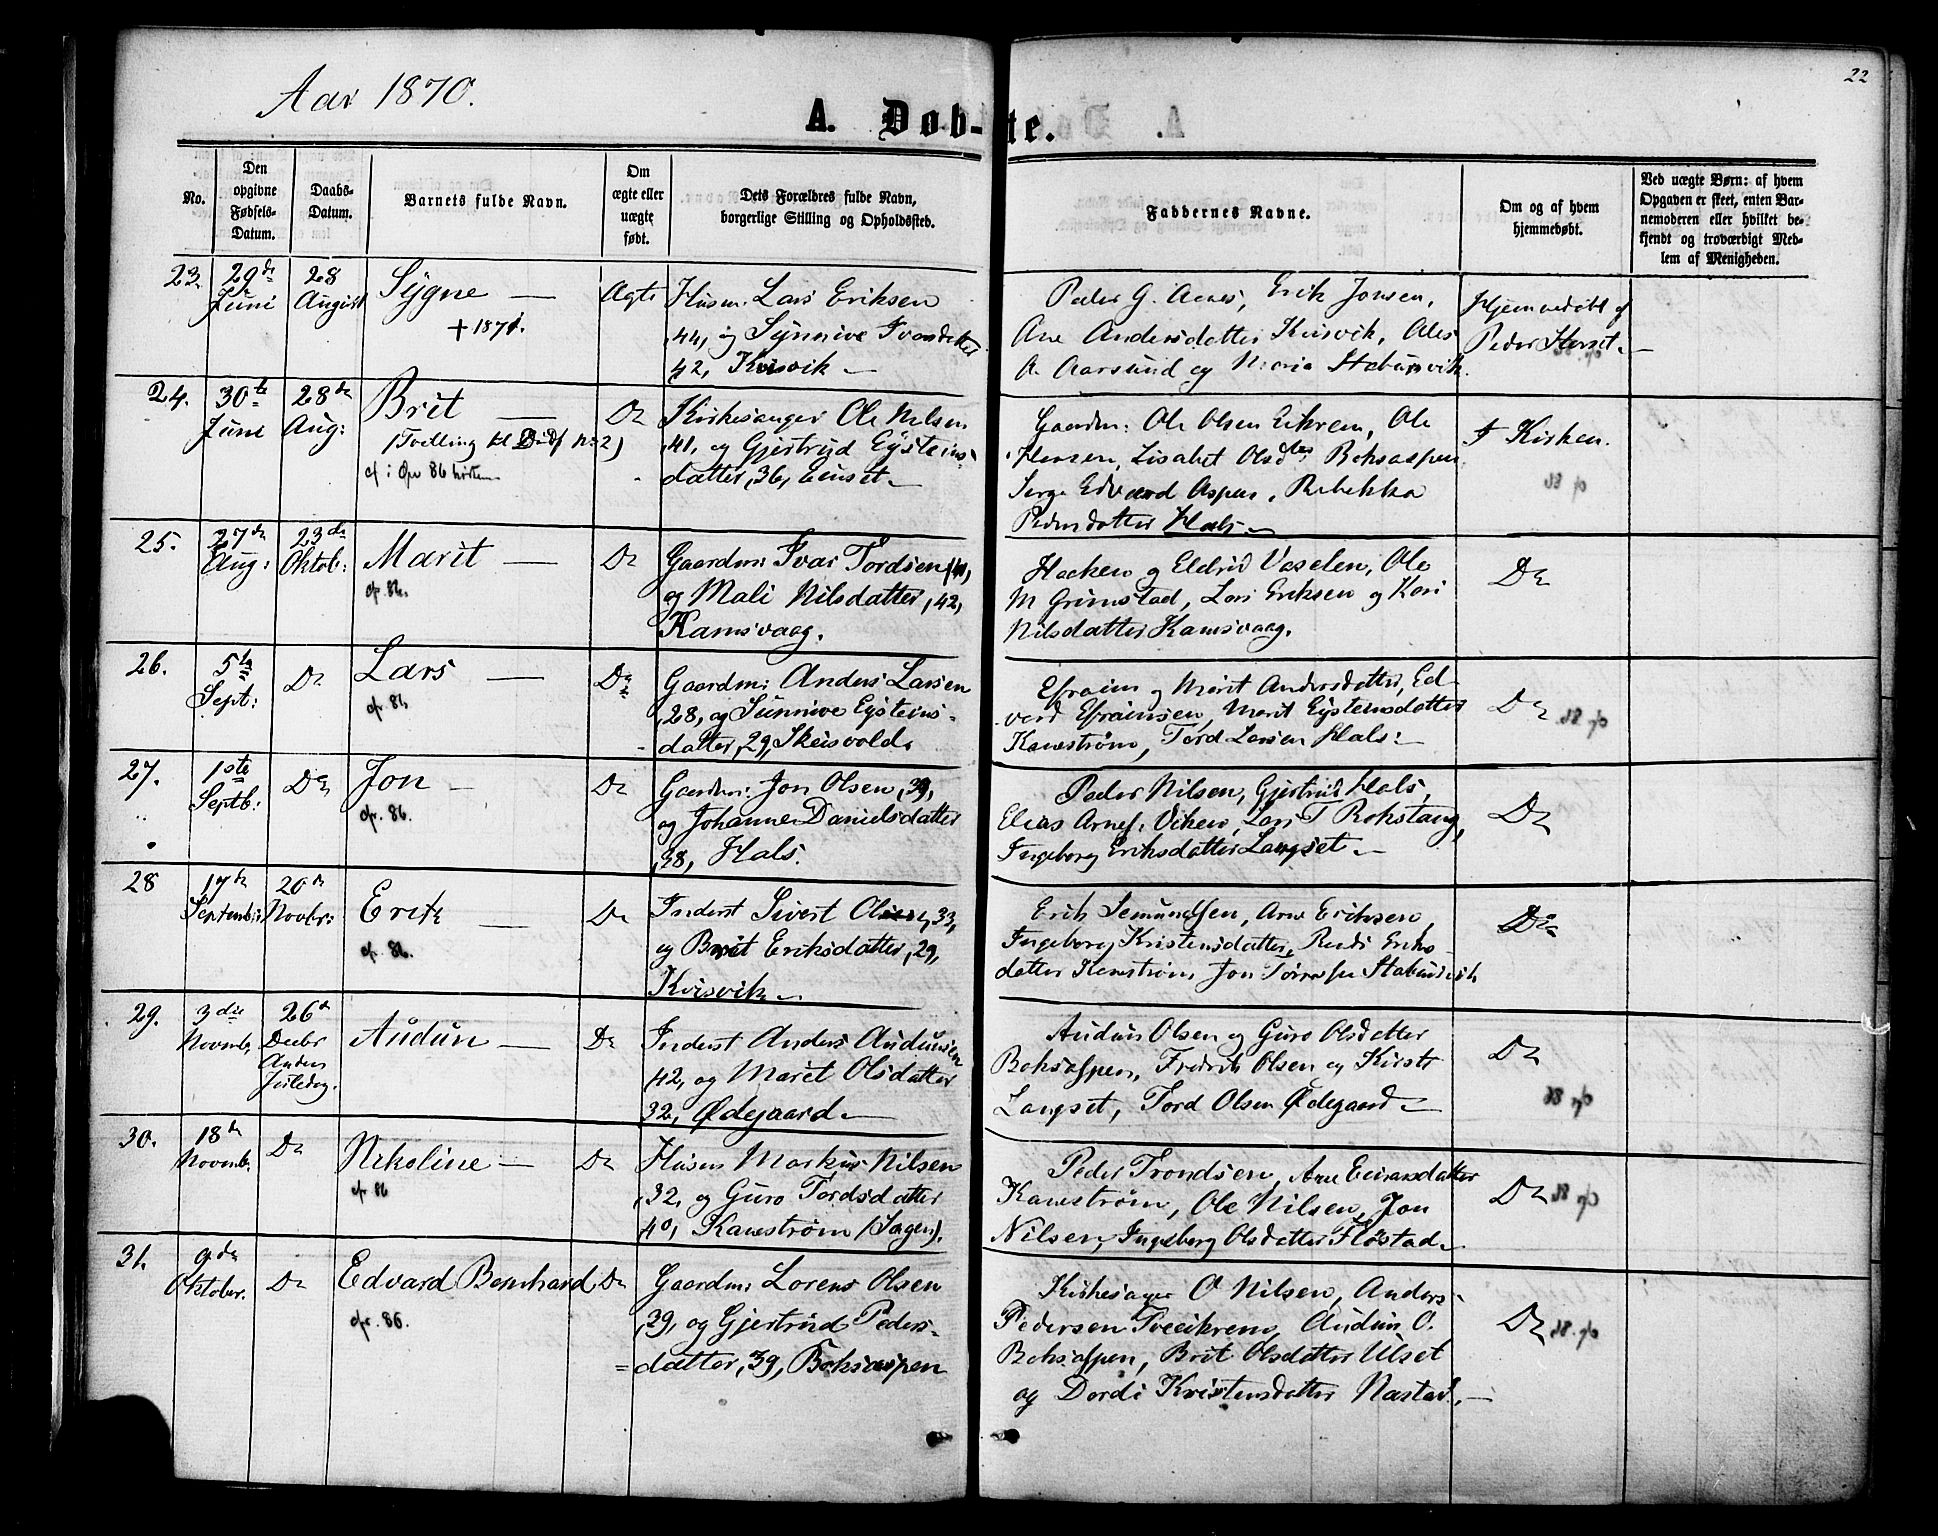 22
Aar 1870.
A. Døb-te.
No.
Den
opgivne
Fødsels-
Datum.
Daabs-
Datum.
Barnets fulde Navn.
Om
ægte eller
uægte
født.
Dets Forældres fulde Navn,
borgerlige Stilling og Opholdssted.
Faddernes Navne.
Om og af hvem
hjemmedøbt.
Ved uægte Børn: af hvem
Opgaven er skeet, enten Bar-
nemoderen eller hvilket be-
kjendt og troværdigt Med-
lem af Menigheden.
23.
29de
Juni
28
August
Sygne —
+ 1871.
Ægte
Husm: Lars Eriksen
44, og Synnive Ivarsdatter
42, Kvisvik —
Peder G. Aenes, Erik Jonsen,
Ane Andersdatter Kvisvik, Ales
A. Aarsund og Maria Stabursvik.
Hjemmedøbt af
Peder Henset. —
24.
30te
Juni
28de
Aug:
Brit —
(Tvilling til Dødf No 2)
Do
Kirkesanger Ole Nilsen
,41, og Gjertrud Eysteins-
datter, 36, Einset —
Gaardm: Ole Olsen Eikrem, Ole
Hansen, Lisabet Olsdtr Boksaspen
Serg. Edvard Aspen, Rebekka
Pedersdatter Hals. —
I Kirken.
25.
27de
Aug:
23de
Oktob:
Marit —
op. 86.
Do
Gaardm: Ivar Tordsen, 41,
og Mali Nilsdatter, 42,
Kamsvaag.
Haaken og Eldrid Vaselen, Ole
M Grimstad, Lars Eriksen og Kari
Nilsdatter Kamsvaag.
Do
26.
5te
Sept:
Do
Lars —
op. 86
Do
Gaardm: Anders Larsen
,28, og Sunnive Eysteins-
datter, 29, Skeisvold.
Efraim og Marit Andersdatter, Ed-
vard Efraimsen, Marit Eysteinsdatter
Kanestrøm, Tord Larsen Hals. —
Do
27.
1ste
Septb:
Do
Jon —
op. 86.
Do
Gaardm: Jon Olsen, 39,
og Johanne Danielsdatter
,38, Hals.
Peder Nilsen, Gjertrud Hals,
Elias Arnes. Viken, Lars T Rokstang,
Ingeborg Eriksdatter Langset —
Do
28
17de
Septemb:
20de
Novbr:
Erik —
op. 86.
Do
Inderst Sivert Olsen, 33,
og Brit Eriksdatter, 29,
Kvisvik —
Erik Semundsen, Arne Eriksen,
Ingeborg Kristensdatter, Randi Eriks-
datter Kanestrøm, Jon Stabursvik
Do
29.
3die
Novemb.
26de
Decbr
Anden
Juledag.
Audun —
Do
Inderst Anders Audunsen
42, og Marit Olsdatter
32, Ødegaard —
Audun Olsen og Guro Olsdatter
Boksaspen, Fredrik Olsen og Kirsti
Langset, Tord Olsen Ødegaard —
Do
30.
18de
Novemb.
Do
Nikoline —
op 86
Do
Husm Markus Nilsen
,32, og Guro Tordsdatter
40, Kanestrøm (Sagen).
Peder Trondsen, Ane Eivandsdatter
Kanestrøm, Ole Nilsen, Jon
Nilsen, Ingeborg Olsdatter Fløstad —
Do
31.
9de
Oktober.
Do
Edvard Bernhard
op. 86.
Do
Gaardm: Lorens Olsen
,29, og Gjertrud Peders-
datter, 39, Boksaspen
Kirkesanger O Nilsen, Anders
Pedersen Tveeikrem, Audun O.
Boksaspen, Brit Olsdatter Ulset
og Dordi Kristensdatter Nastad. —
Do